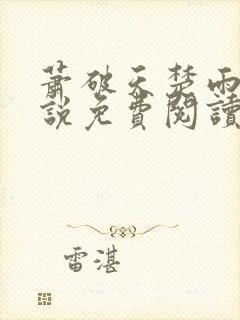 蕭破天楚雨
說免費閱讀
雷湛